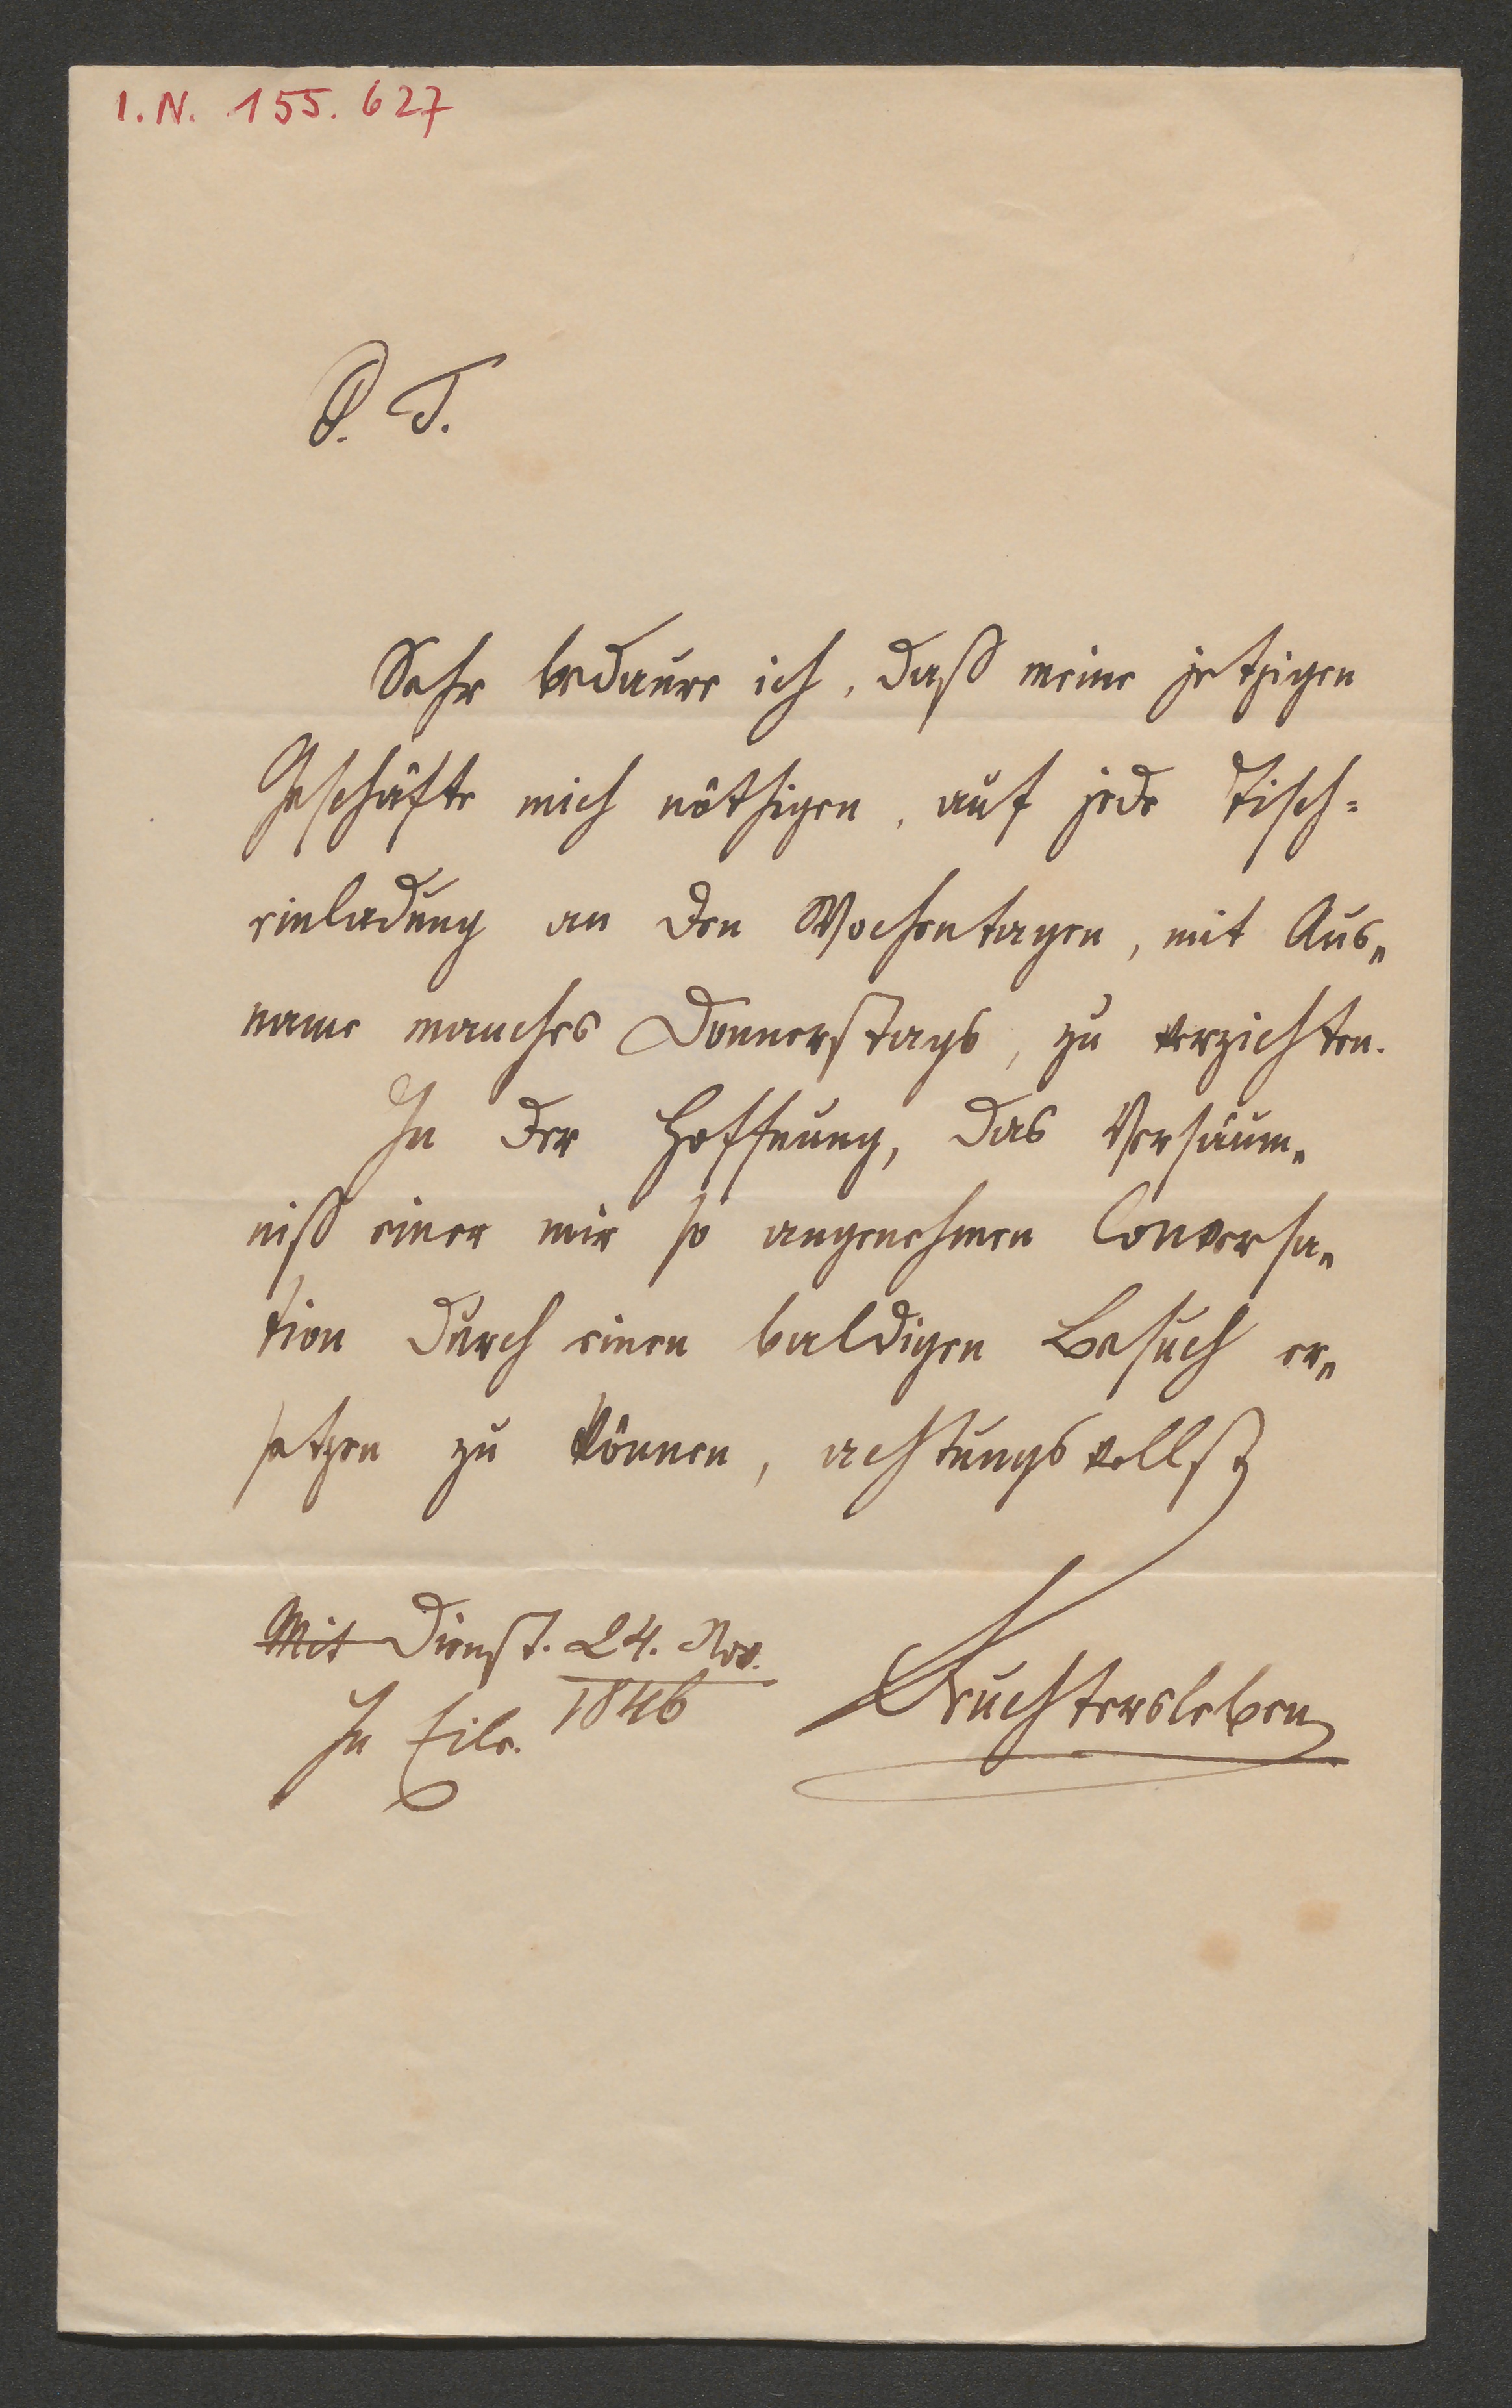 I. N. 155. 627
P. T.
Sehr bedaure ich, daß meine jetzigen
Geschäfte mich nöthigen, auf jede Tisch=
einladung an den Wochentagen, mit Aus„
name manches Donnerstags, zu verzichten.
In der Hoffnung, das Versäum„
niß einer mir so angenehmen Conversa„
tion durch einen baldigen Besuch er„
setzen zu können, achtungsvollst
Mit Dienst. 24. Nov.
1846
In Eile.
Feuchtersleben